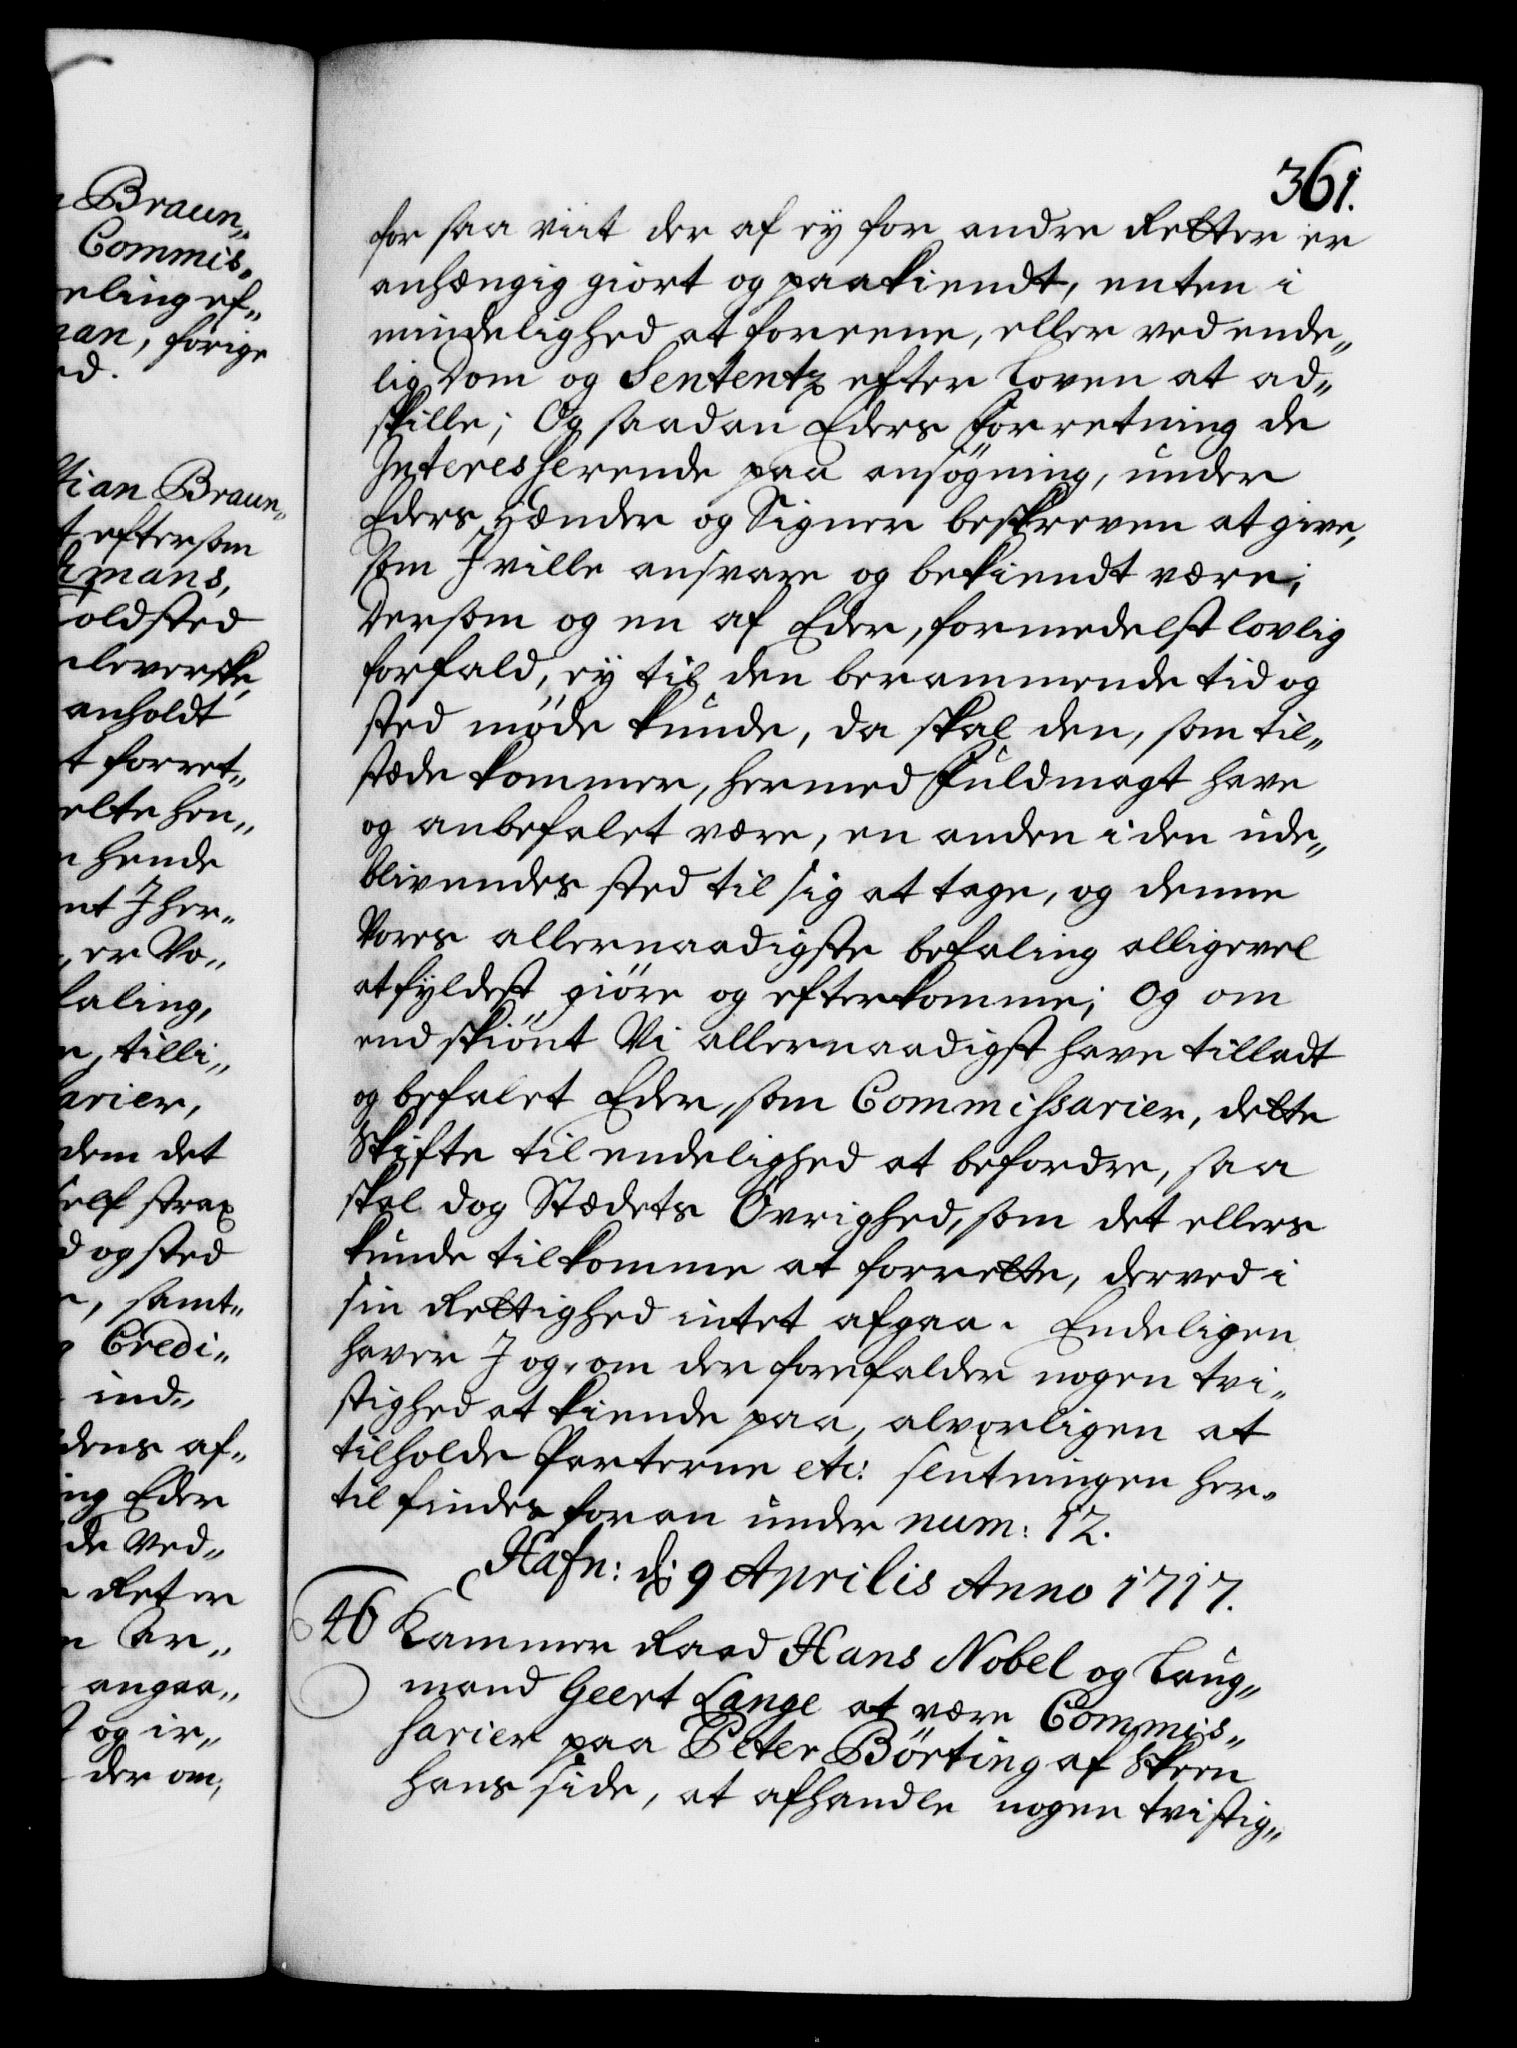 361.
for saa viit der af ey for andre Retter er
anhængig giort og paakiendt, enten i
mindelighed at foreene, eller ved ende„
lig Dom og Sententz efter Loven at ad„
skille; Og saadan Eders Forretning de
Interesserende paa ansøgning, under
Eders Hænder og Signer beskreven at give,
som I ville ansvare og bekiendt være;
Dersom og en af Eder, formedelst lovlig
forfald, ey til den berammende tid og
sted møde kunde, da skal den, som til„
stæde kommer, hermed Fuldmagt have
og anbefalet være, en anden i den ude„
blivendes sted til sig at tage, og denne
Vores allernaadigste befaling alligevel
at fyldest giöre og efterkomme; Og om
end skiönt Vi allernaadigst have tilladt
og befalet Eder, som Commissarier, dette
Skifte til endelighed at befordre, saa
skal dog Stædets Øvrighed, som det ellers
kunde tilkomme at forrette, derved i
sin Rettighed intet afgaa. Endeligen
haver I og, om der forrefalder nogen tvi„
stighed at kiende paa, alvorligen at
tilholde Parterne etc: slutningen her„
til findes foran under num: 12.
Hafn: d: 9 Aprilis Anno 1717.
46 Kammer Raad Hans Nobel og Laug„
mand Geert Lange at være Commis„
sarier paa Peter Börting af Skeen
hans side, at afhandle nogen tvistig„
Braun„
Commis„
eling ef„
man, forige
ed.
stian Braun„
t eftersom
mans,
oldsted
leverske,
anholdt
t forret„
elte hen„
n hende
nt I her„
, er Vo„
faling,
n, tilli„
sarier,
dem det
self strax
d og sted
r, samt„
g Credi„
ind„
dens af„
ing Eder
de Ved„
e Ret er
n Ar„
angaa„
og ir„
der om,